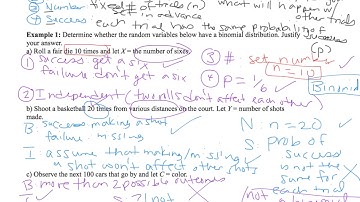 B: Number fixed # of trials (n) what will happen w/
in advance other trials
4 Success: each trial has to same probability of
success
(p)
Example 1: Determine whether the random variables below have a binomial distribution. Justify your answer.
a) Roll a fair die 10 times and let X = the number of sixes
① success get a six
failure don't get a six
③ #: set number
n = 10
④ P = 1/6
② Independent (two rolls don't affect each other)
Binomial
b) Shoot a basketball 20 times from various distances on the court. Let Y = number of shots made.
B: success making a shot
failure: missing
N: n = 20
I assume that making/missing
a shot won't affect other shots
S: prob of
success
is not the
same for
each trial
c) Observe the next 100 cars that go by and let C = color.
B: more than 2 possible outcomes
not a binomial